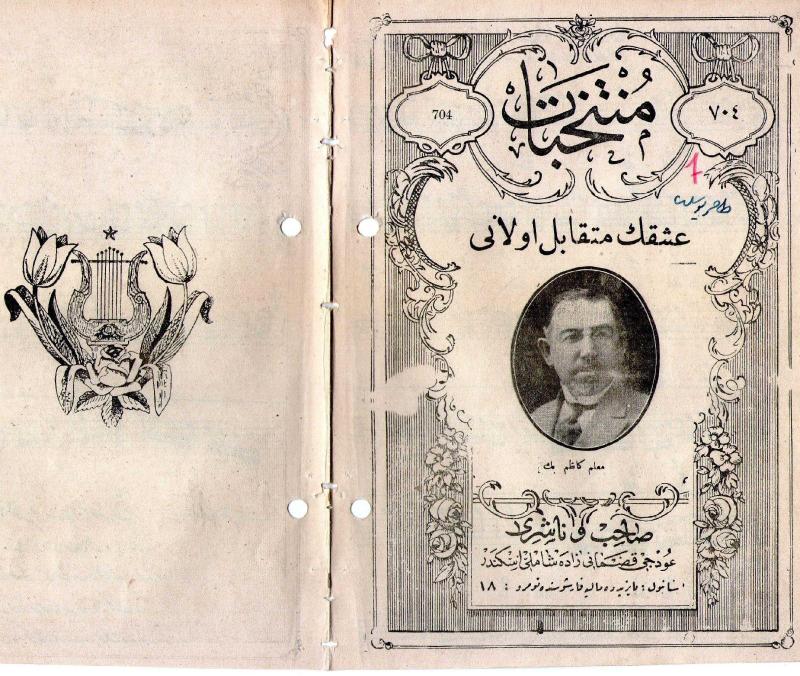 704
منتخبات
٧٠٤
عشقك متقابل اولانى
معلم كاظم بك
صاحب و ناشرى
عودجى زاده شاملى اسكندر
استانبول : بايزيدده ماليه قارشوسنده نومرو : ١٨